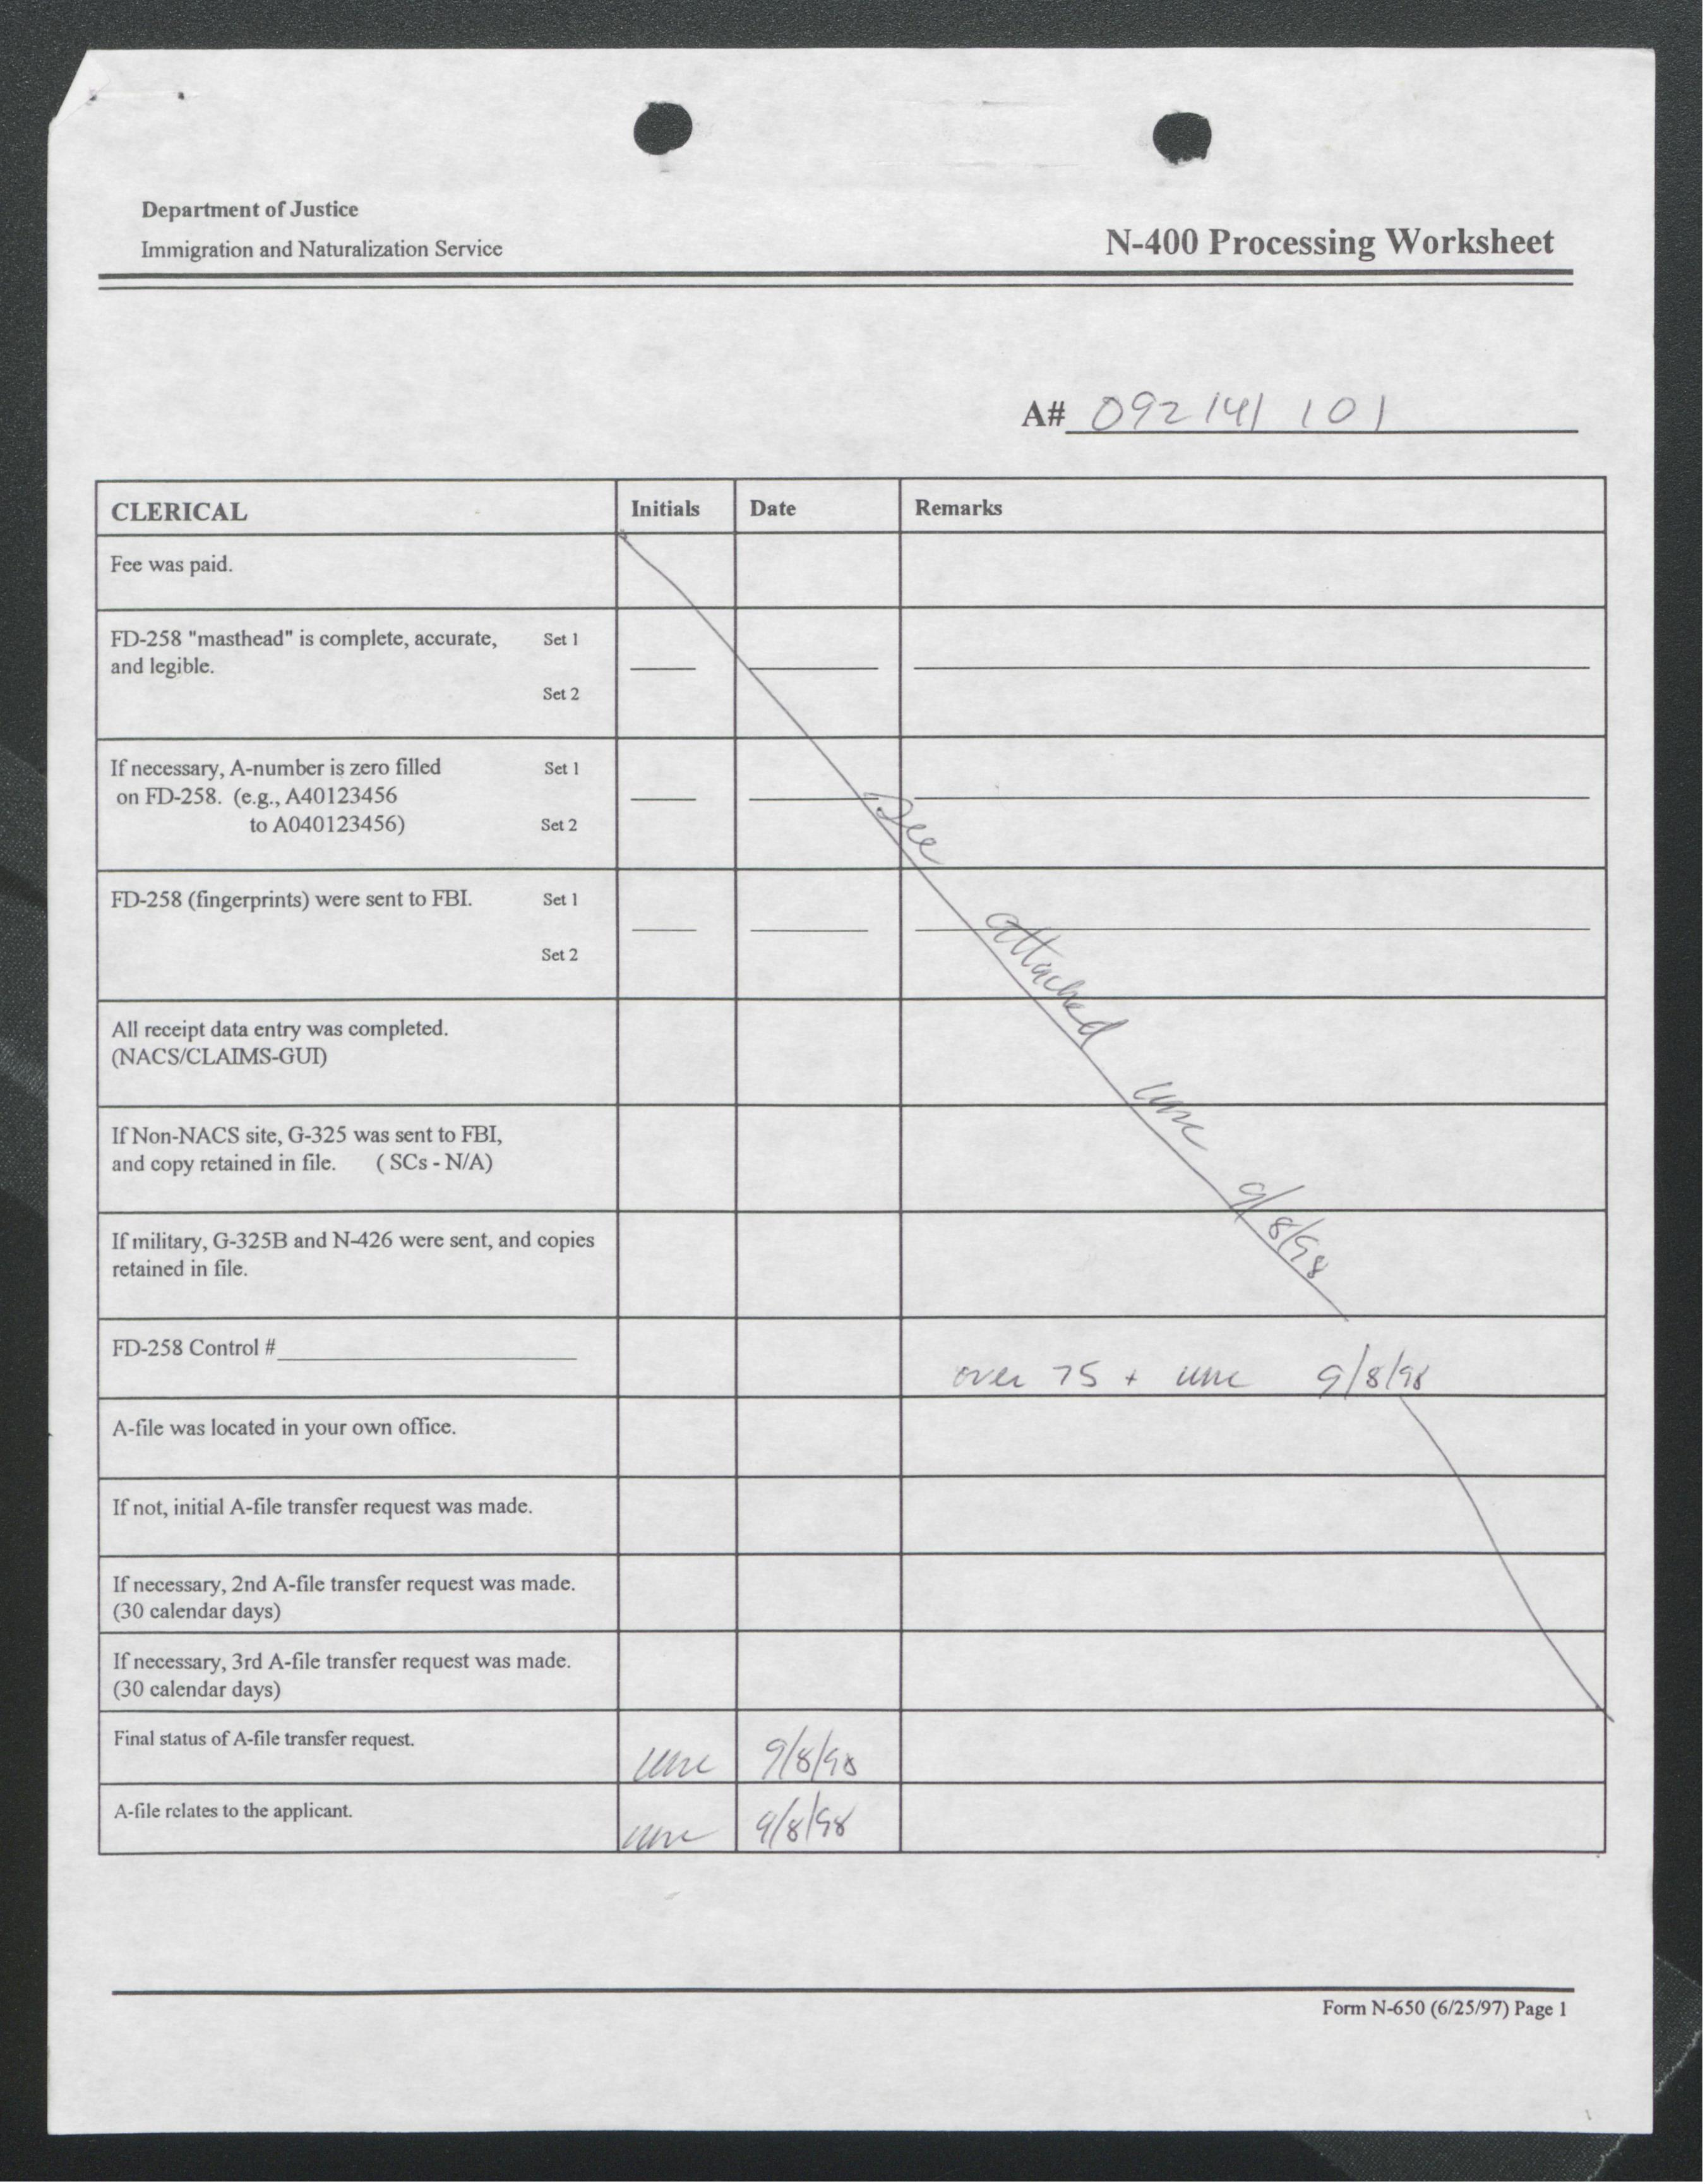 Department of Justice
Immigration and Naturalization Service
N-400 Processing Worksheet
A# 092 141 101
CLERICAL Initials Date Remarks
Fee was paid.
FD-258 "masthead" is complete, accurate, Set 1
and legible.
Set 2
If necessary, A-number is zero filled Set 1
on FD-258. (e.g., A40123456
to A040123456) Set 2
See
FD-258 (fingerprints) were sent to FBI. Set 1
Set 2
attached
All receipt data entry was completed.
(NACS/CLAIMS-GUI)
If Non-NACS site, G-325 was sent to FBI,
and copy retained in file. ( SCs - N/A)
9/8/98
If military, G-325B and N-426 were sent, and copies
retained in file.
FD-258 Control #
over 75 + 9/8/98
A-file was located in your own office.
If not, initial A-file transfer request was made.
If necessary, 2nd A-file transfer request was made.
(30 calendar days)
If necessary, 3rd A-file transfer request was made.
(30 calendar days)
Final status of A-file transfer request. 9/8/98
A-file relates to the applicant. 9/8/98
Form N-650 (6/25/97) Page 1